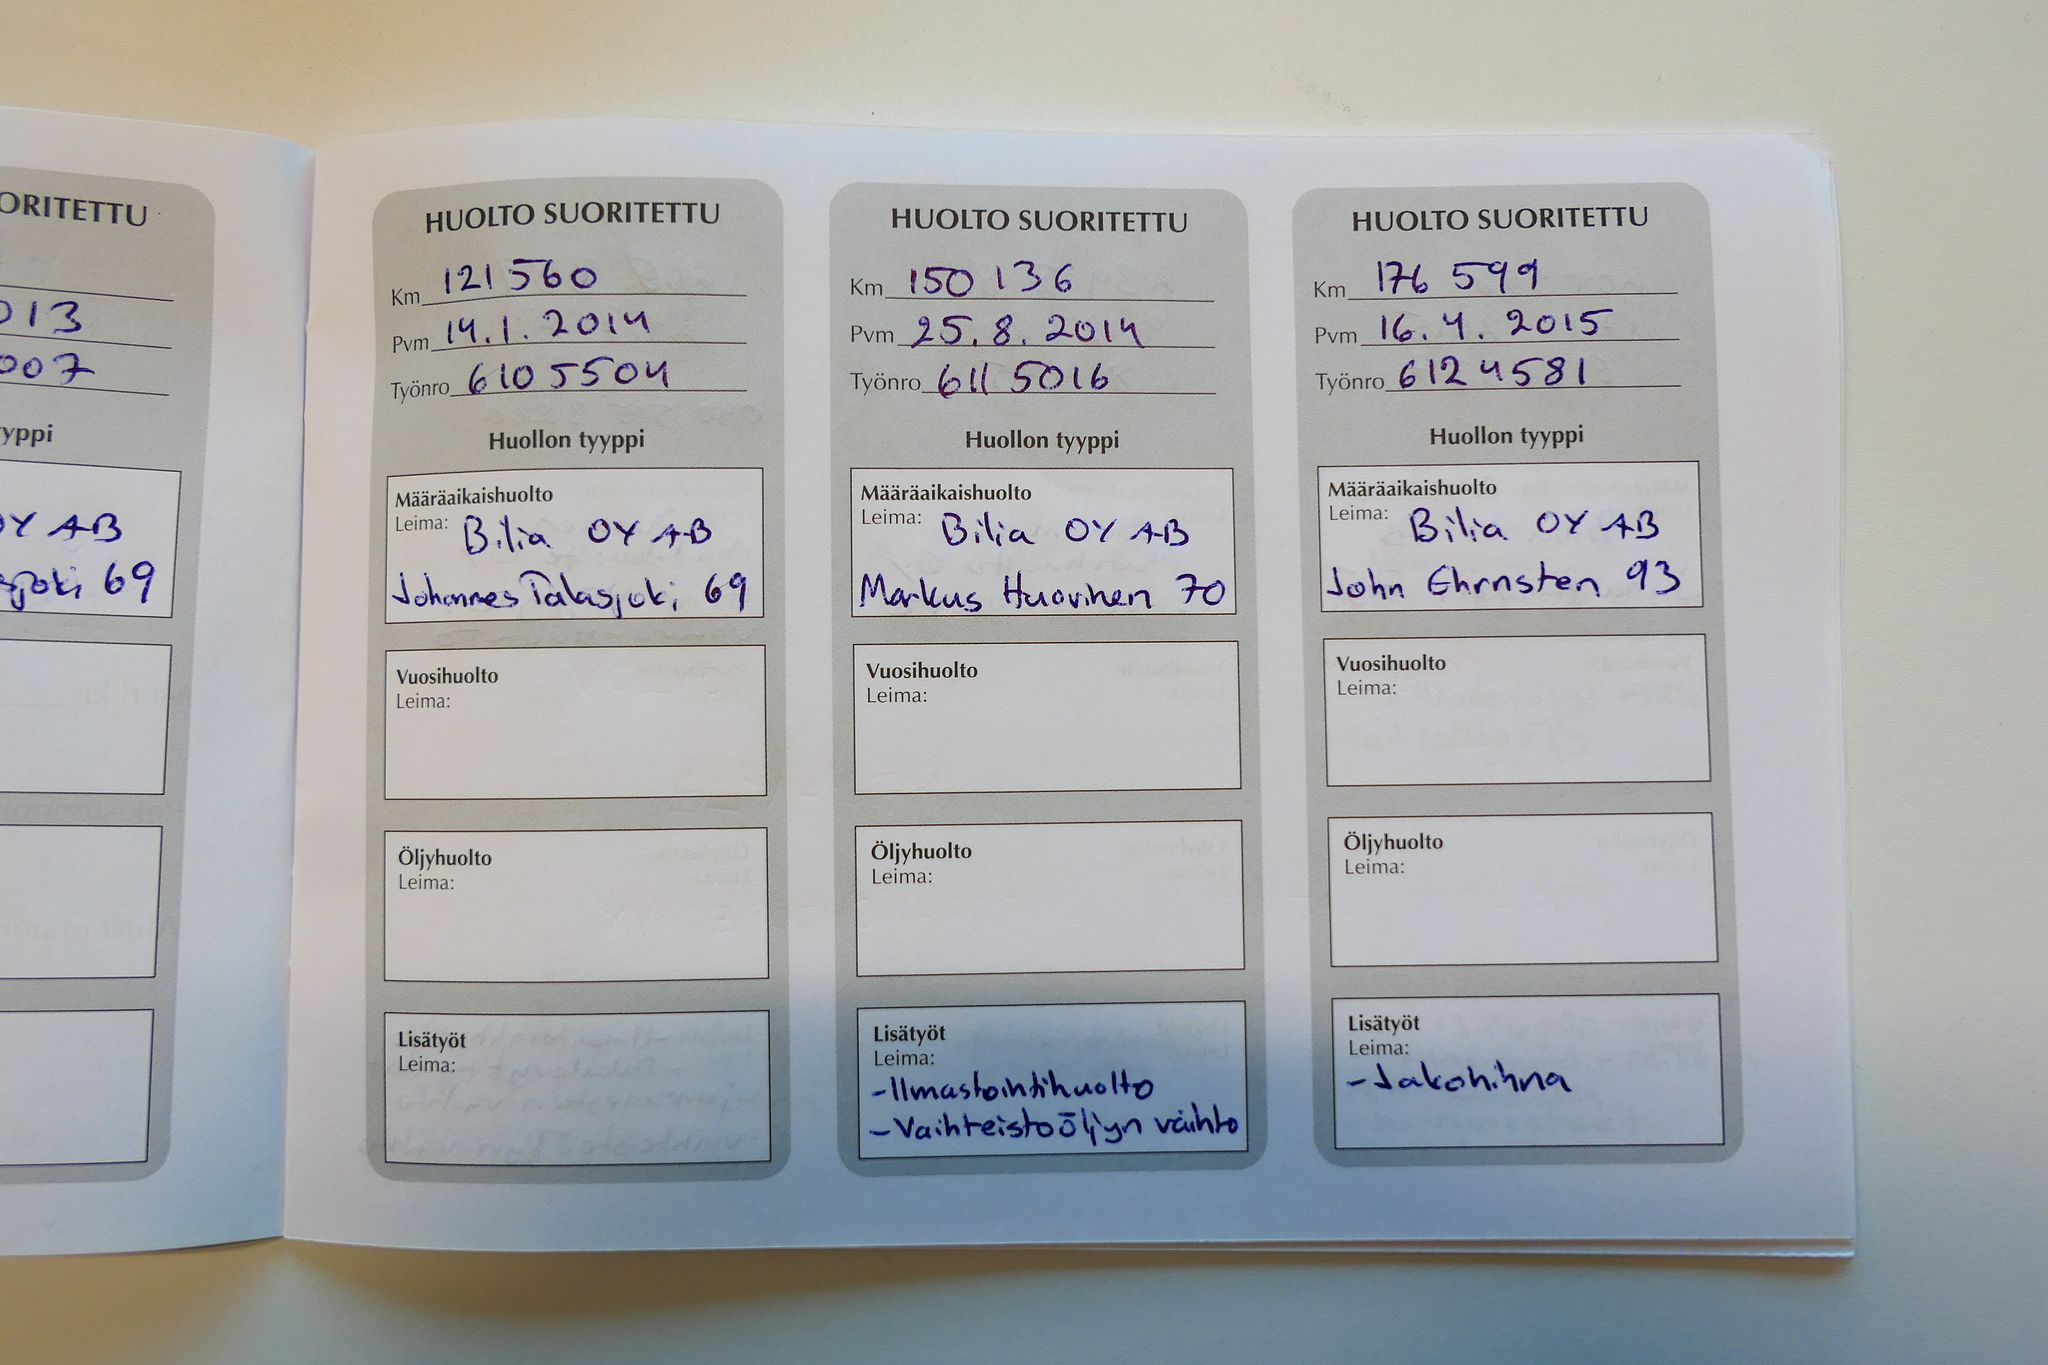 ORITETTU
013
007
yyppi
OY AB
69
HUOLTO SUORITETTU
Km 121 560
Pvm 14.1.2014
Työnro 6105504
Huollon tyyppi
Määräaikaishuolto
Leima: Bilia OY AB
Johannes Talasjoki 69
Vuosihuolto
Leima:
Öljyhuolto
Leima:
Lisätyöt
Leima:
HUOLTO SUORITETTU
Km 150 136
Pvm 25.8.2014
Työnro 6115016
Huollon tyyppi
Määräaikaishuolto
Leima: Bilia OY AB
Markus Huovinen 70
Vuosihuolto
Leima:
Öljyhuolto
Leima:
Lisätyöt
Leima:
-Ilmastointihuolto
-Vaihteistoöljyn vaihto
HUOLTO SUORITETTU
Km 176 599
Pvm 16.4.2015
Työnro 6124581
Huollon tyyppi
Määräaikaishuolto
Leima: Bilia OY AB
John Ehrnsten 93
Vuosihuolto
Leima:
Öljyhuolto
Leima:
Lisätyöt
Leima:
-Jakohihna